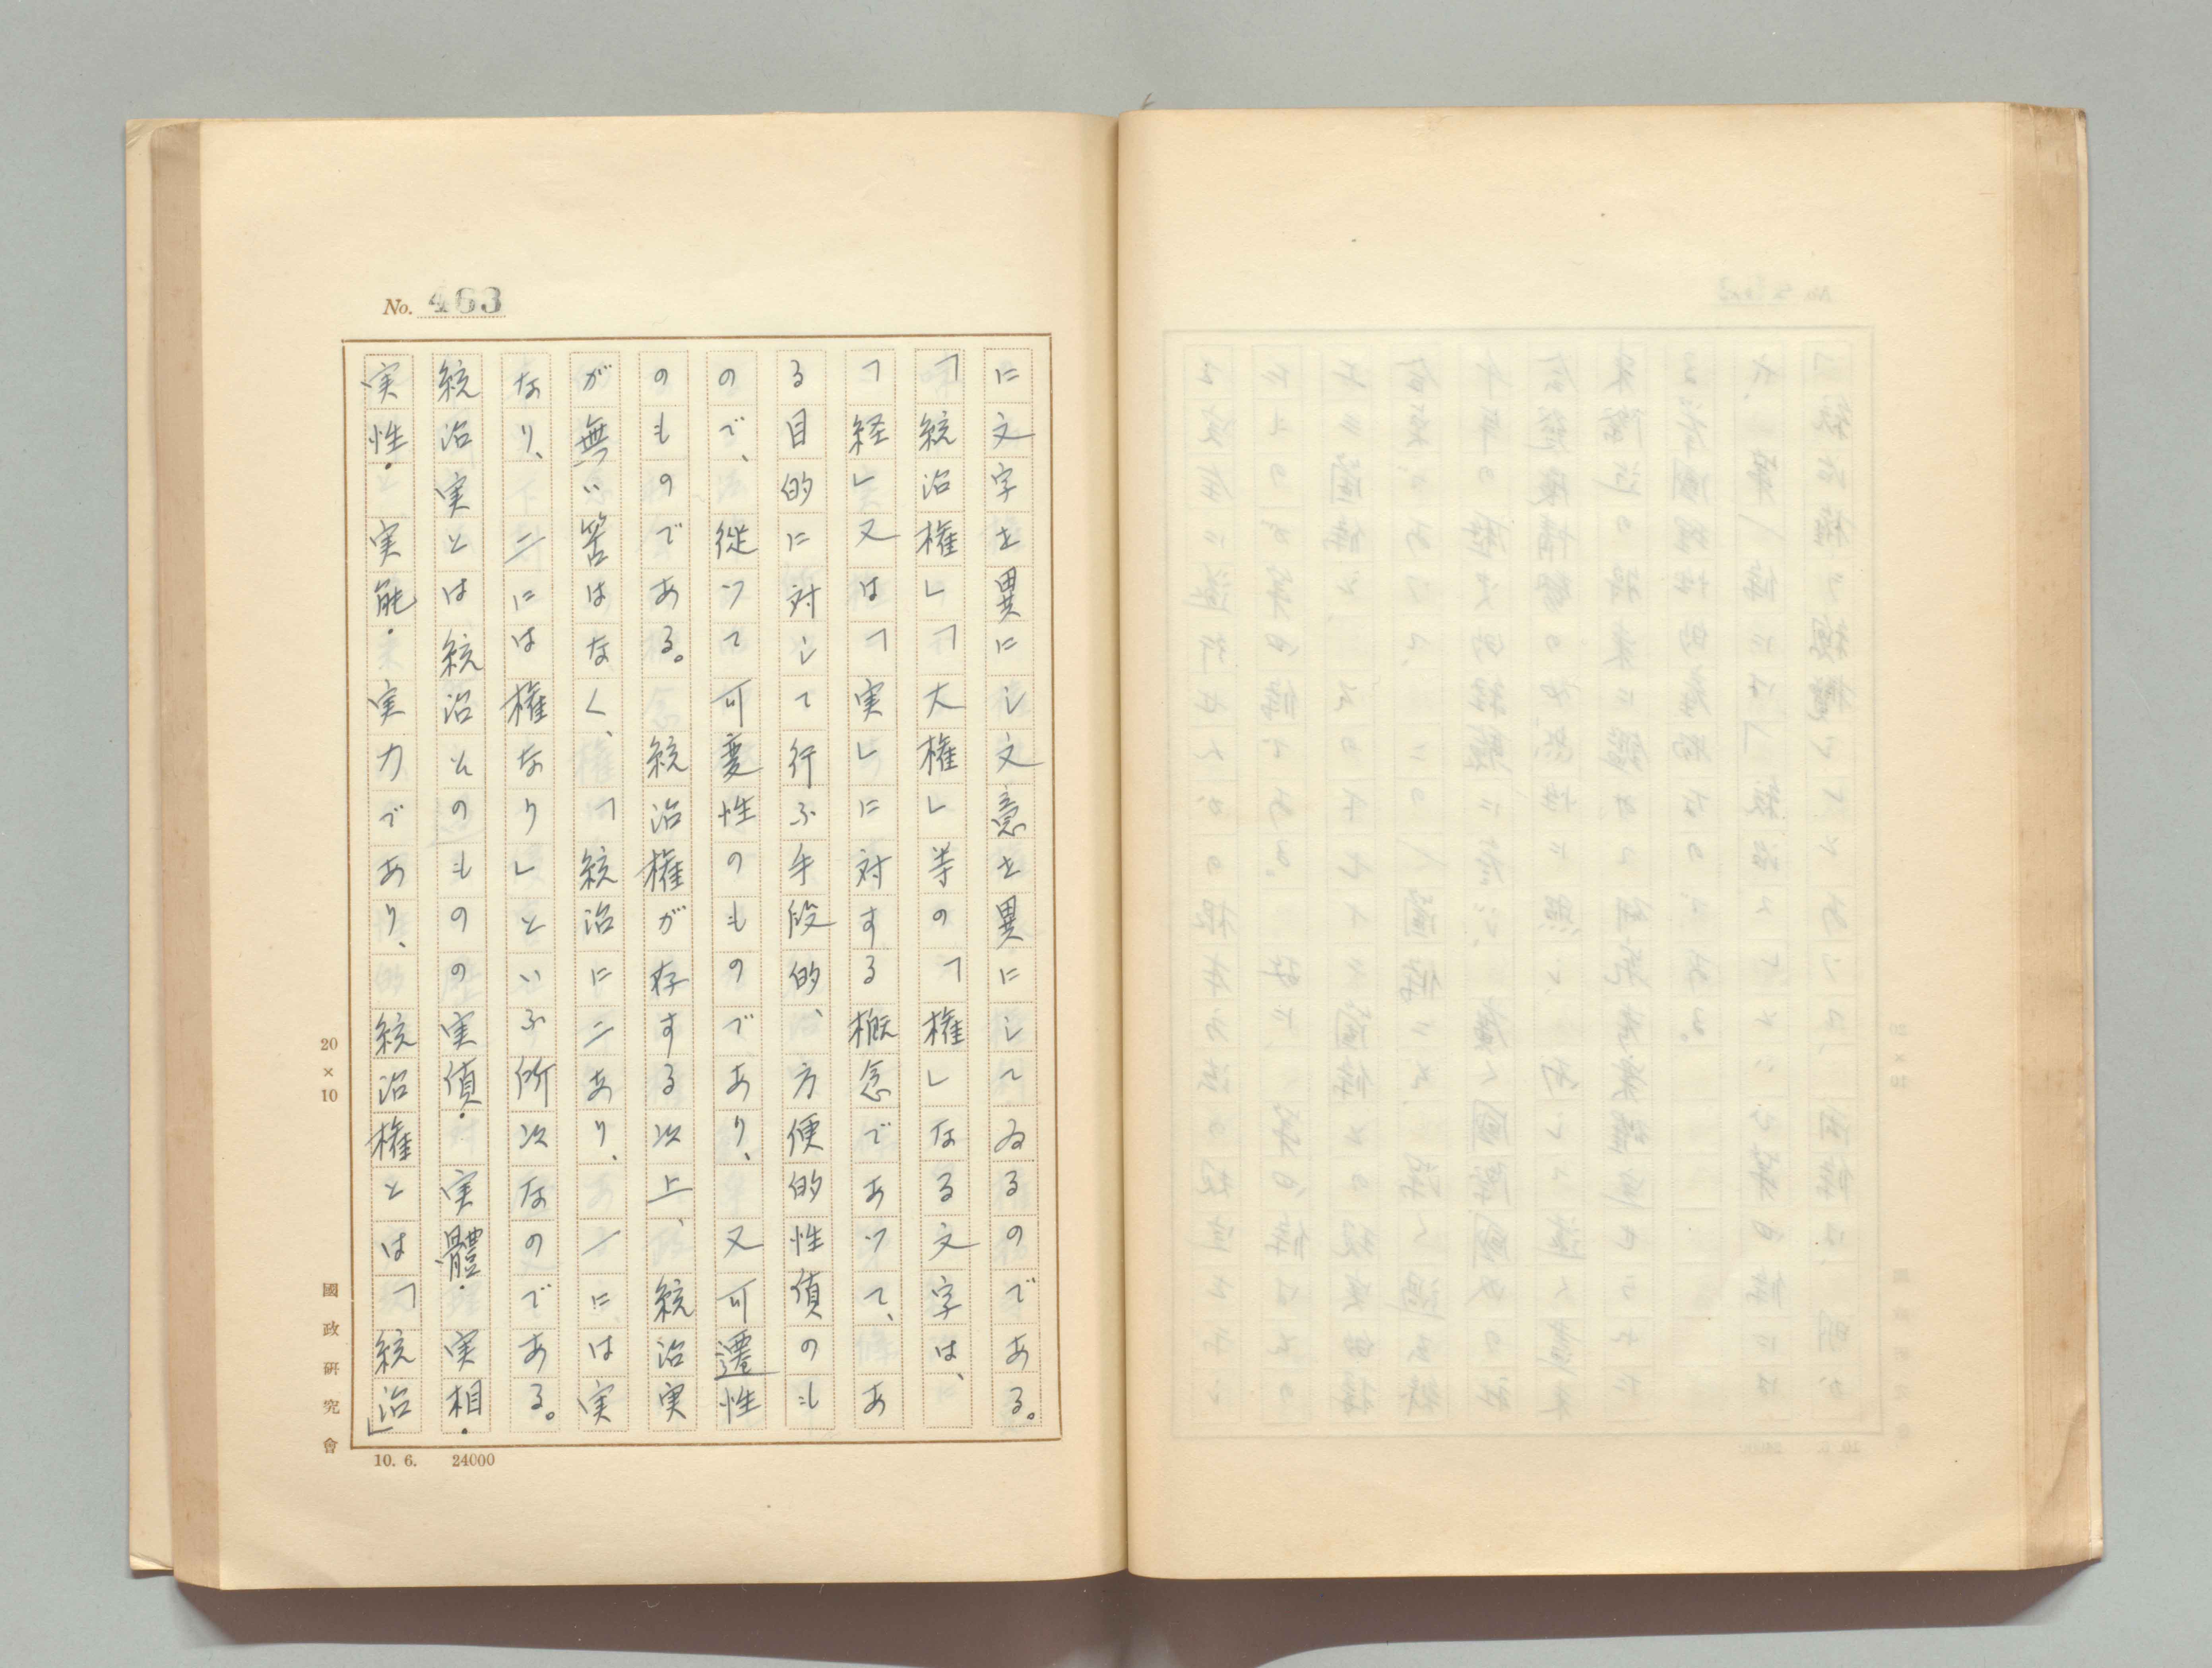 No. 463
に文字を異にし文意を異にしてゐるのである。
「統治権」「大権」等の「権」なる文字は、
「経」又は「実」に対する概念であつて、あ
る目的に対して行ふ手段的、方便的性質のも
ので、従つて可変性のものであり、又可遷性
のものである。統治権が存する以上、統治実
が無い筈はなく、「統治に二あり、一には実
なり、二には権なり」といふ所以なのである。
統治実とは統治そのものの実質・実體・実相・
実性・実能・実力であり、統治権とは「統治」
20×10
國政研究會
10. 6. 24000